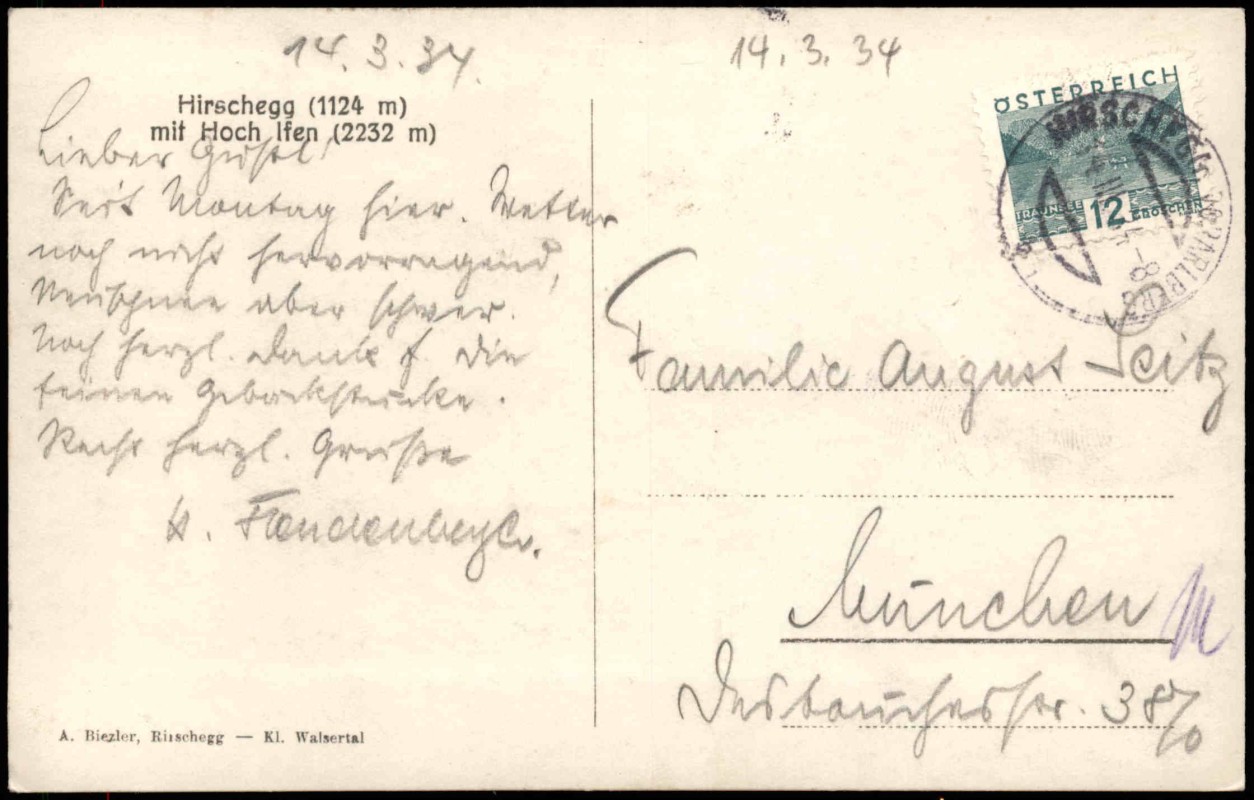 14.3.34.
Hirschegg (1124 m)
mit Hoch Ifen (2232 m)
Lieber Gustl!
Seit Montag hier. Wetter
noch nicht hervorragend,
Neuschnee aber schwer.
Noch herzl. Dank f. die
feinen Gebäckstücke.
Recht herzl. Grüße
A. Biezler, Hirschegg — Kl. Walsertal
14.3.34
ÖSTERREICH
TRAUNSEE 12 GROSCHEN
HIRSCHEGG VORARLBERG
Familie August Seitz
München
M
Destouchesstr. 38/0